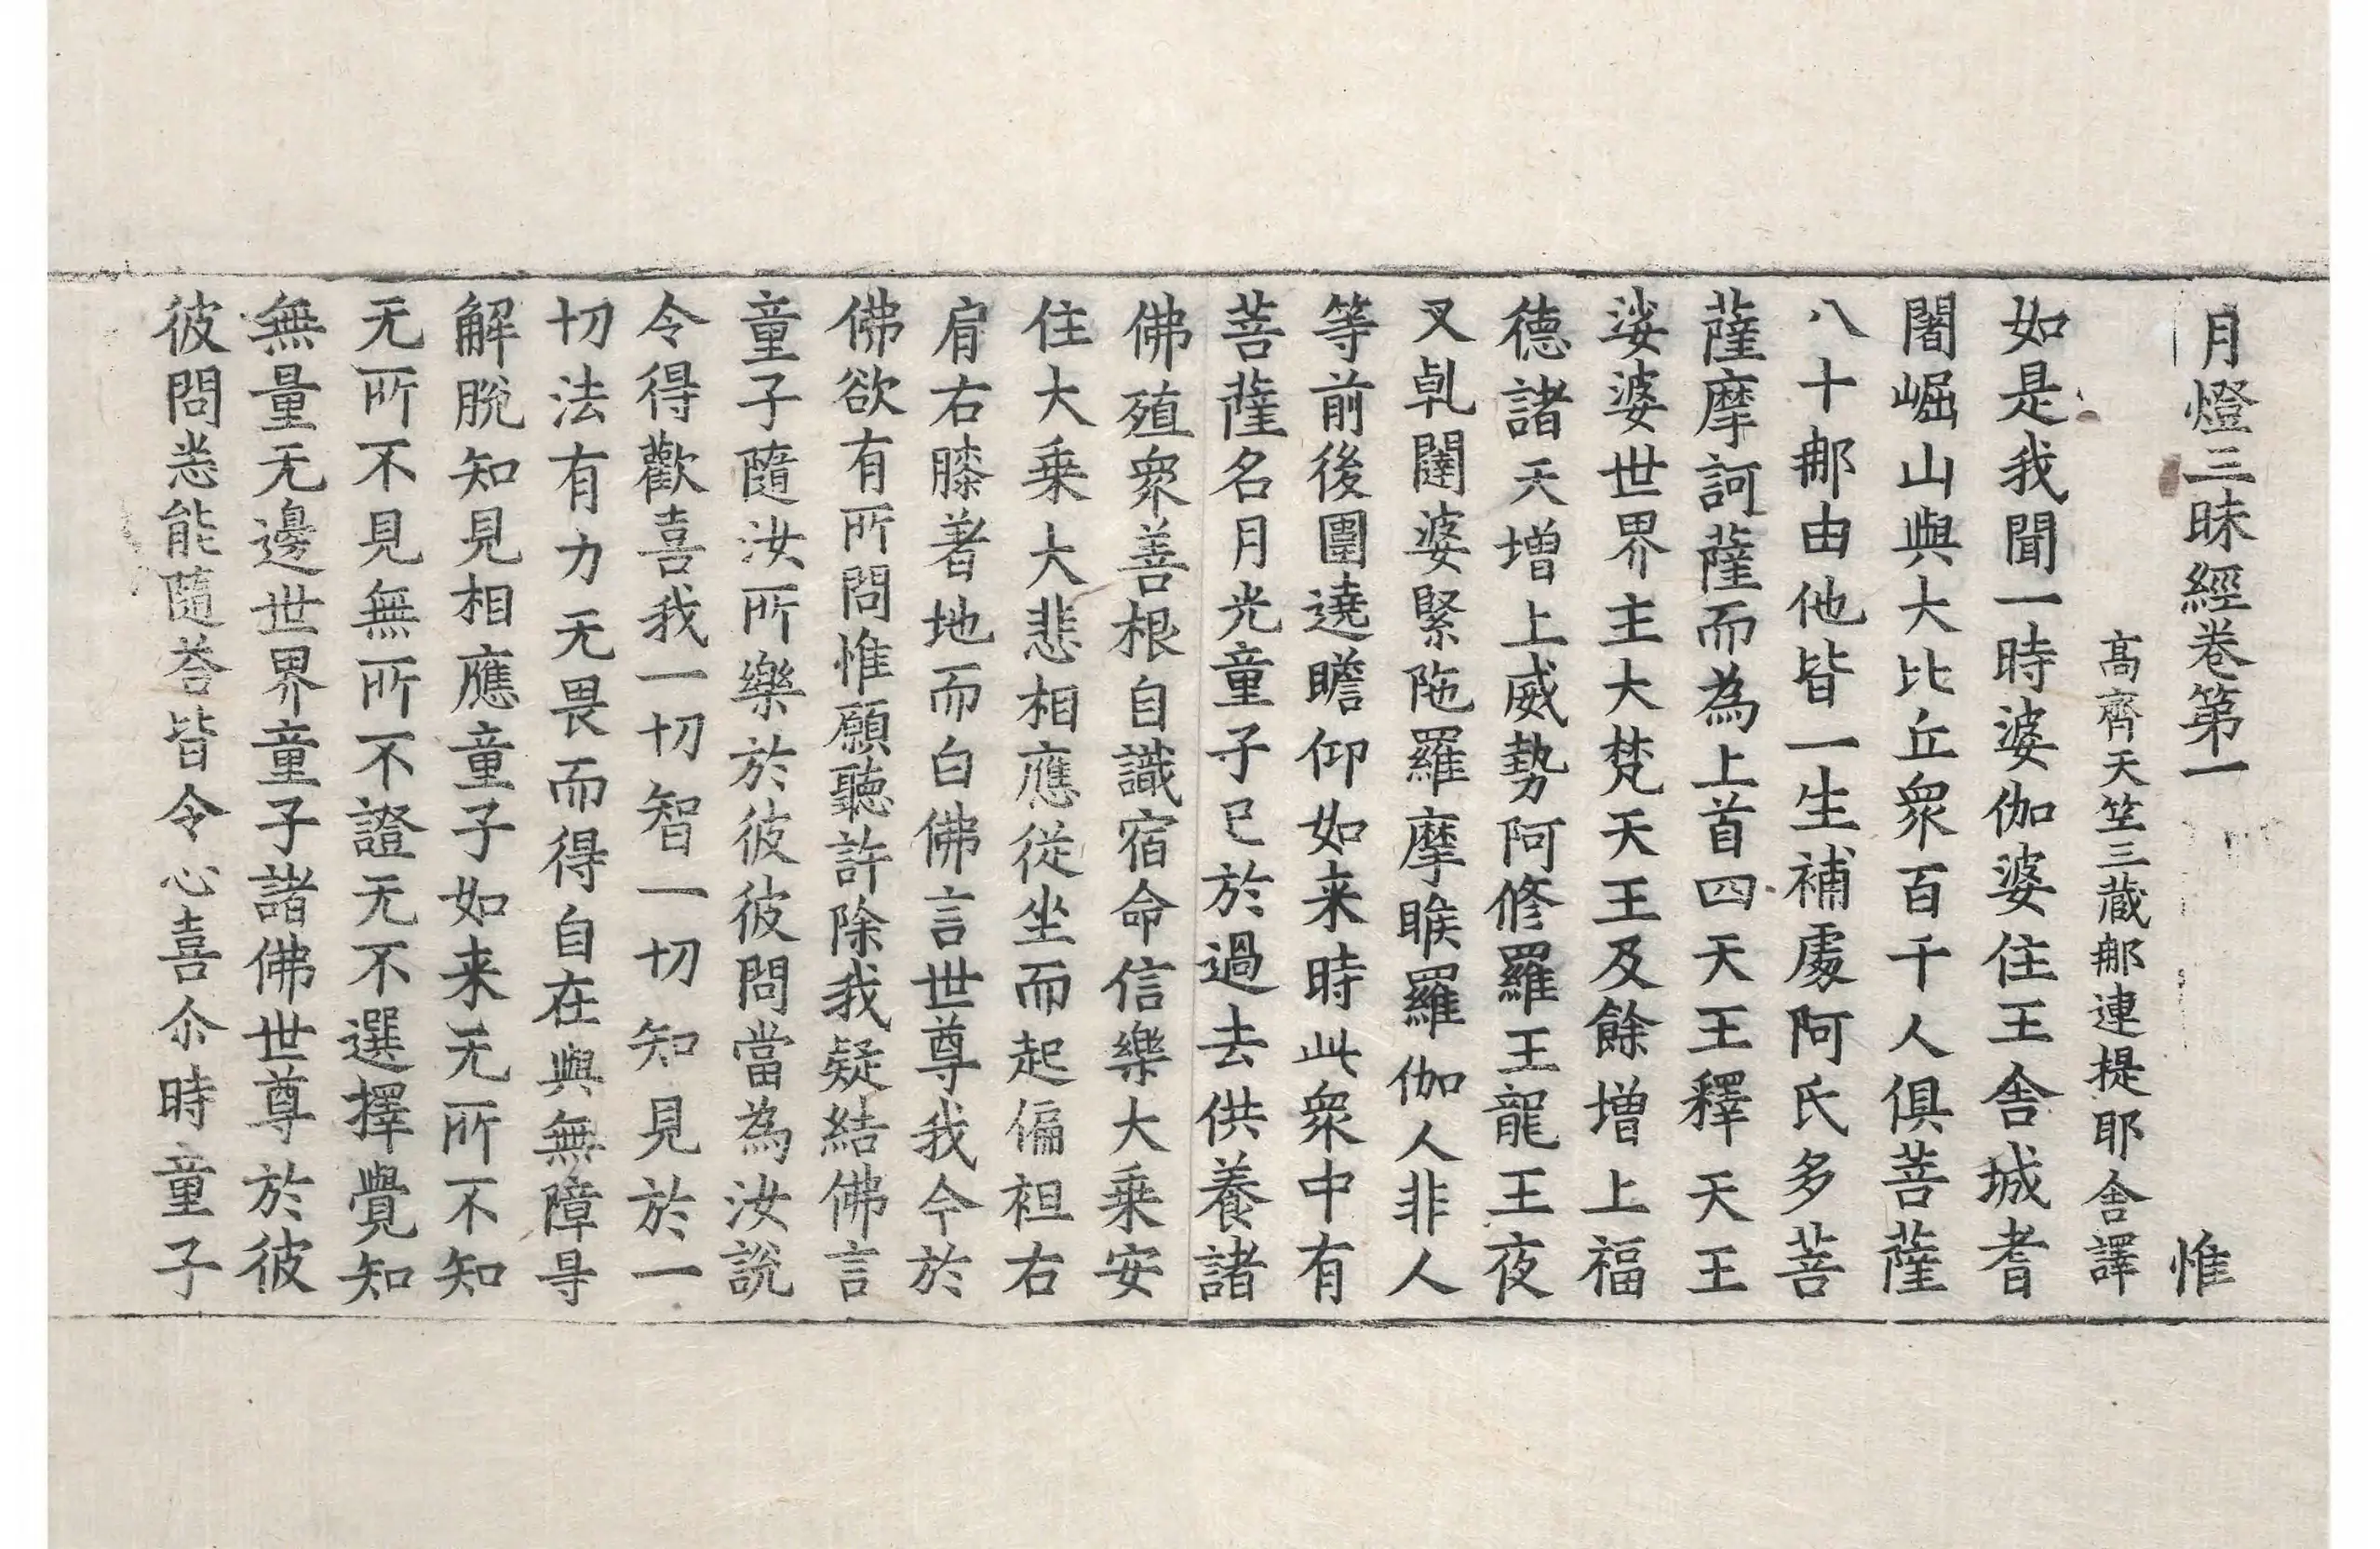 月燈三昧經卷第一 惟
髙齊天笁三藏𨚗連提耶舎譯
如是我聞一時婆伽婆住王舎城耆
闍崛山與大比丘衆百千人俱菩薩
八十𨚗由他皆一生補處阿氏多菩
薩摩訶薩而為上首四天王釋天王
娑婆世界主大梵天王及餘增上福
德諸天增上威勢阿修羅王龍王夜
叉乹闥婆緊陁羅摩睺羅伽人非人
等前後圍遶瞻仰如来時此衆中有
菩薩名月光童子已於過去供養諸
佛殖衆善根自識宿命信樂大乗安
住大乗大悲相應從坐而起偏袒右
肩右膝著地而白佛言世尊我今於
佛欲有所問惟願聽許除我疑結佛言
童子隨汝所樂於彼彼問當為汝說
令得歡喜我一切智一切知見於一
切法有力无畏而得自在與無障㝵
解脫知見相應童子如来无所不知
无所不見無所不證无不選擇覺知
無量无邊世界童子諸佛世尊於彼
彼問悉能隨荅皆令心喜尒時童子